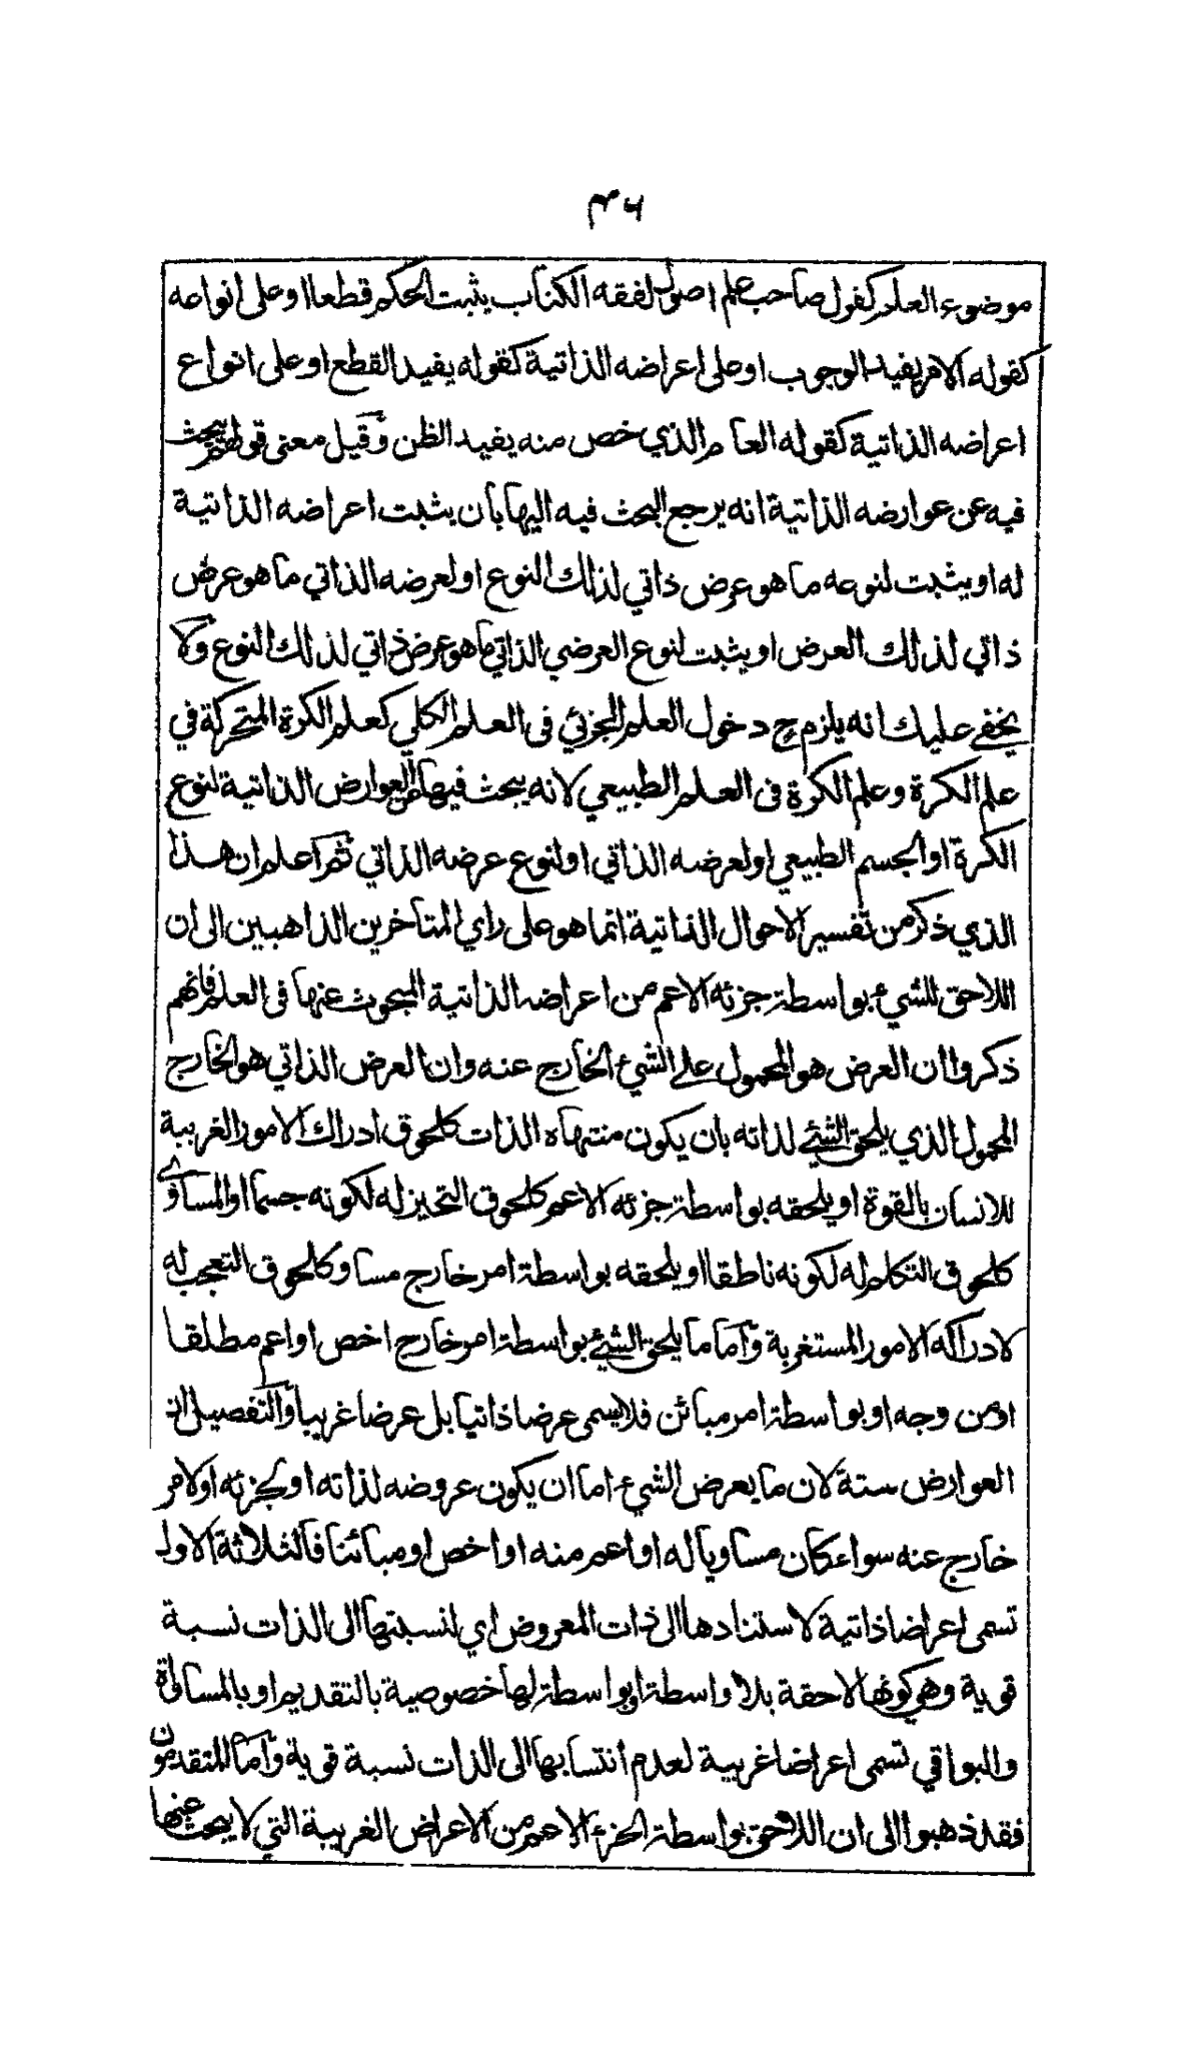 ٤٦
موضوع العلم كقول صاحب علم اصول الفقه الكتاب يثبت الحكم قطعا او على انواعه
كقوله الامر يفيد الوجوب او على اعراضه الذاتية كقوله يفيد القطع او على انواع
اعراضه الذاتية كقوله العام الذي خص منه يفيد الظن وقيل معنى قولهم يبحث
فيه عن عوارضه الذاتية انه يرجع البحث فيه اليها بأن يثبت اعراضه الذاتية
له او يثبت لنوعه ما هو عرض ذاتي لذلك النوع او لعرضه الذاتي ما هو عرض
ذاتي لذلك العرض او يثبت لنوع العرضي الذاتي ما هو عرض ذاتي لذلك النوع ولا
يخفى عليك انه يلزم ح دخول العلم الجزئي فى العلم الكلي كعلم الكرة المتحركة في
علم الكرة وعلم الكرة فى العلم الطبيعي لانه يبحث فيها عن العوارض الذاتية لنوع
الكرة او الجسم الطبيعي او لعرضه الذاتي او لنوع عرضه الذاتي ثم اعلم ان هذا
الذي ذكر من تفسير الاحوال الذاتية انما هو على راي المتاخرين الذاهبين الى ان
اللاحق للشيء بواسطة جزئه الاعم من اعراضه الذاتية المبحوث عنها فى العلم فانهم
ذكروا ان العرض هو المحمول على الشيء الخارج عنه وان العرض الذاتي هو الخارج
المحمول الذي يلحق الشئ لذاته بان يكون منتهاه الذات كلحوق ادراك الامور الغريبة
للانسان بالقوة او يلحقه بواسطة جزئه الاعم كلحوق التحيز له لكونه جسما او المساوي
كلحوق التكلم له لكونه ناطقا او يلحقه بواسطة امر خارج مساو كلحوق التعجب له
لادراكه الامور المستغربة واما ما يلحق الشئ بواسطة امر خارج اخص او اعم مطلقا
او من وجه او بواسطة امر مبائن فلا يسمى عرضا ذاتيا بل عرضا غريبا والتفصيل ان
العوارض ستة لان ما يعرض الشيء اما ان يكون عروضه لذاته او لجزئه او لامر
خارج عنه سواء كان مساويا له او اعم منه او اخص او مبائنا فالثلاثة الاول
تسمى اعراضا ذاتية لاستنادها الى ذات المعروض اي لنسبتها الى الذات نسبة
قوية وهو كونها لاحقة بلا واسطة او بواسطة لها خصوصية بالتقديم او بالمساواة
والبواقي تسمى اعراضا غريبة لعدم انتسابها الى الذات نسبة قوية واما المتقدمون
فقد ذهبوا الى ان اللاحق بواسطة الجزء الاعم من الاعراض الغريبة التي لا يبحث عنها